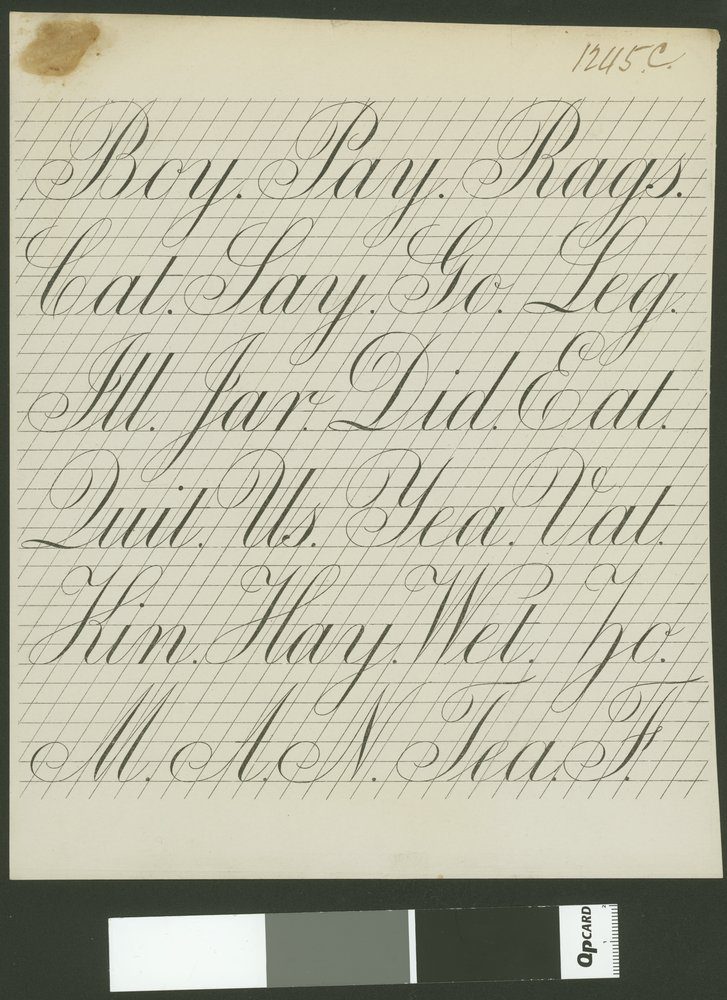 1245.C.
Boy. Pay. Rags.
Cat. Say. Go. Leg.
Ill. Jar. Did. Eat.
Quit. Us. Yea. Vat.
Kin. Hay. Wet. &c.
M. A. N. Tea. F.
QPCARD